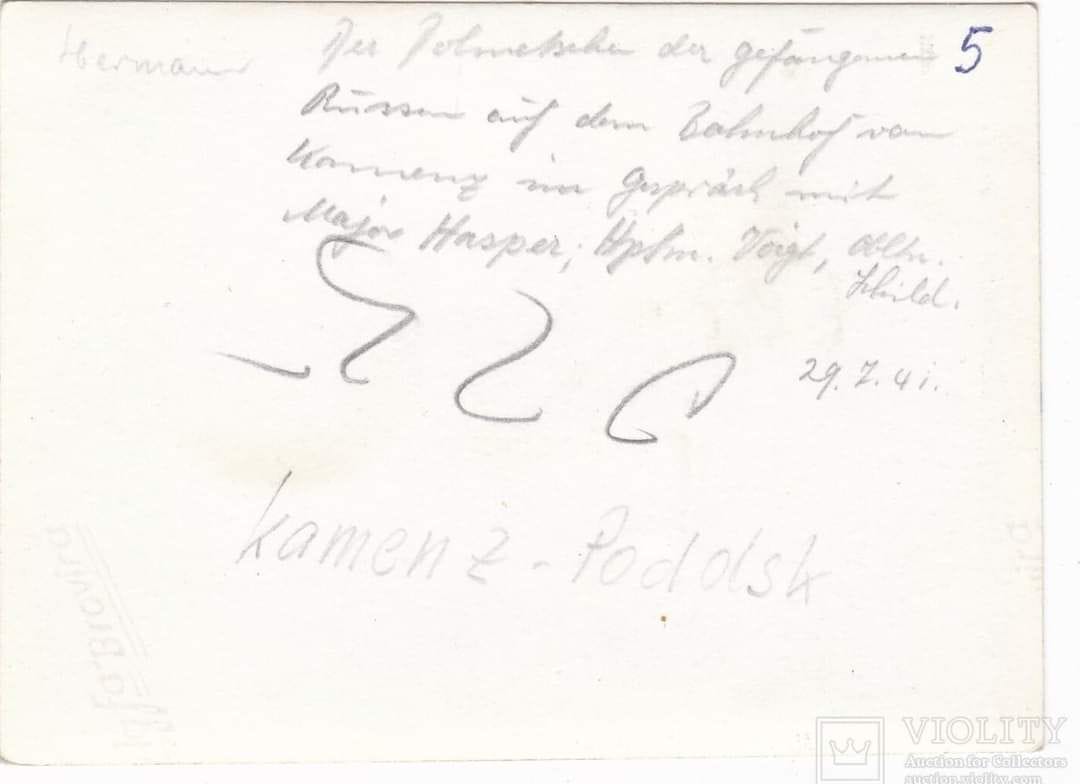 Hermann
Der Dolmetscher der gefangenen
5
Russen auf dem Bahnhof von
Kamenz im Gespräch mit
Major Hasper, Hptm. Voigt, Oltn.
Schild.
29.7.41.
Kamenz - Poddsk
Agfa-Brovira
VIOLITY
Auction for Collectors
auction.violity.com